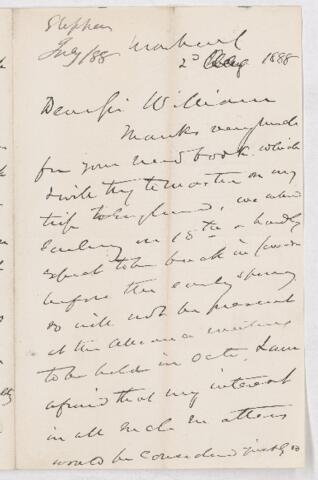 Stephen
July/88
Montreal
2d Aug 1888
Dear Sir William
Thanks very much
for your new book which
I will try to master on my
trip to England, we intend
Sailing on 15th & hardly
expect to be back in Canada
before the early spring
so will not be present
at the Alliance meeting
to be held in Octr. I am
afraid that my interest
in all such matters
would be considered